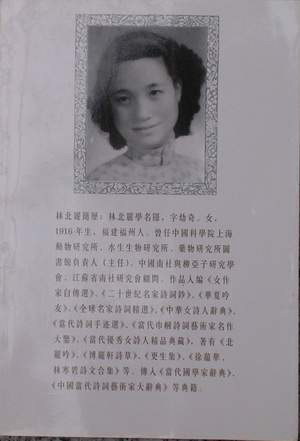 林北麗簡歷:林北麗學名隱,字幼奇,女,
1916年生,福建福州人。曾任中國科學院上海
動物研究所、水生生物研究所、藥物研究所圖
書館負責人(主任)、中國南社與柳亞子研究學
會、江蘇省南社研究會顧問。作品入編《女作
家自傳選》、《二十世紀名家詩詞鈔》、《華夏吟
友》、《全球名家詩詞精選》、《中華女詩人辭典》、
《當代詩詞手迹選》、《當代巾幗詩詞藝術家名作
大鑒》、《當代優秀女詩人精品典藏》。著有《北
麗吟》、《博麗軒詩草》、《更生集》、《徐蘊華、
林寒碧詩文合集》等。傳入《當代國學家辭典》、
《中國當代詩詞藝術家大辭典》等典籍。